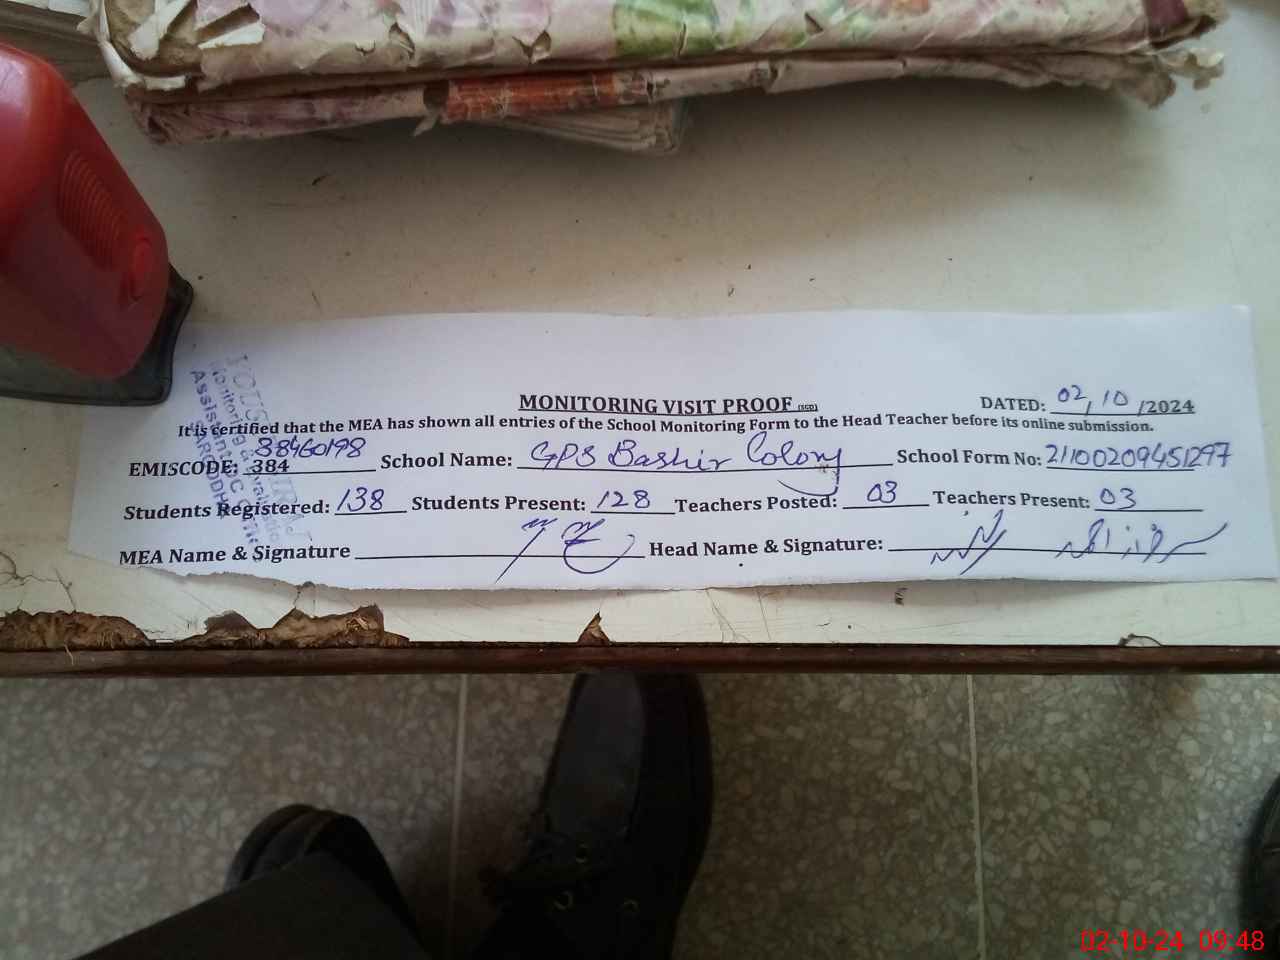 MONITORING VISIT PROOF (SGD)
DATED: 02/10/2024
It is certified that the MEA has shown all entries of the School Monitoring Form to the Head Teacher before its online submission.
EMISCODE: 384 38460198 School Name: GPS Bashir Colony School Form No: 21100209451297
Students Registered: 138 Students Present: 128 Teachers Posted: 03 Teachers Present: 03
MEA Name & Signature Head Name & Signature:
Monitoring &
Assistant
SARGODHA
02-10-24 09:48